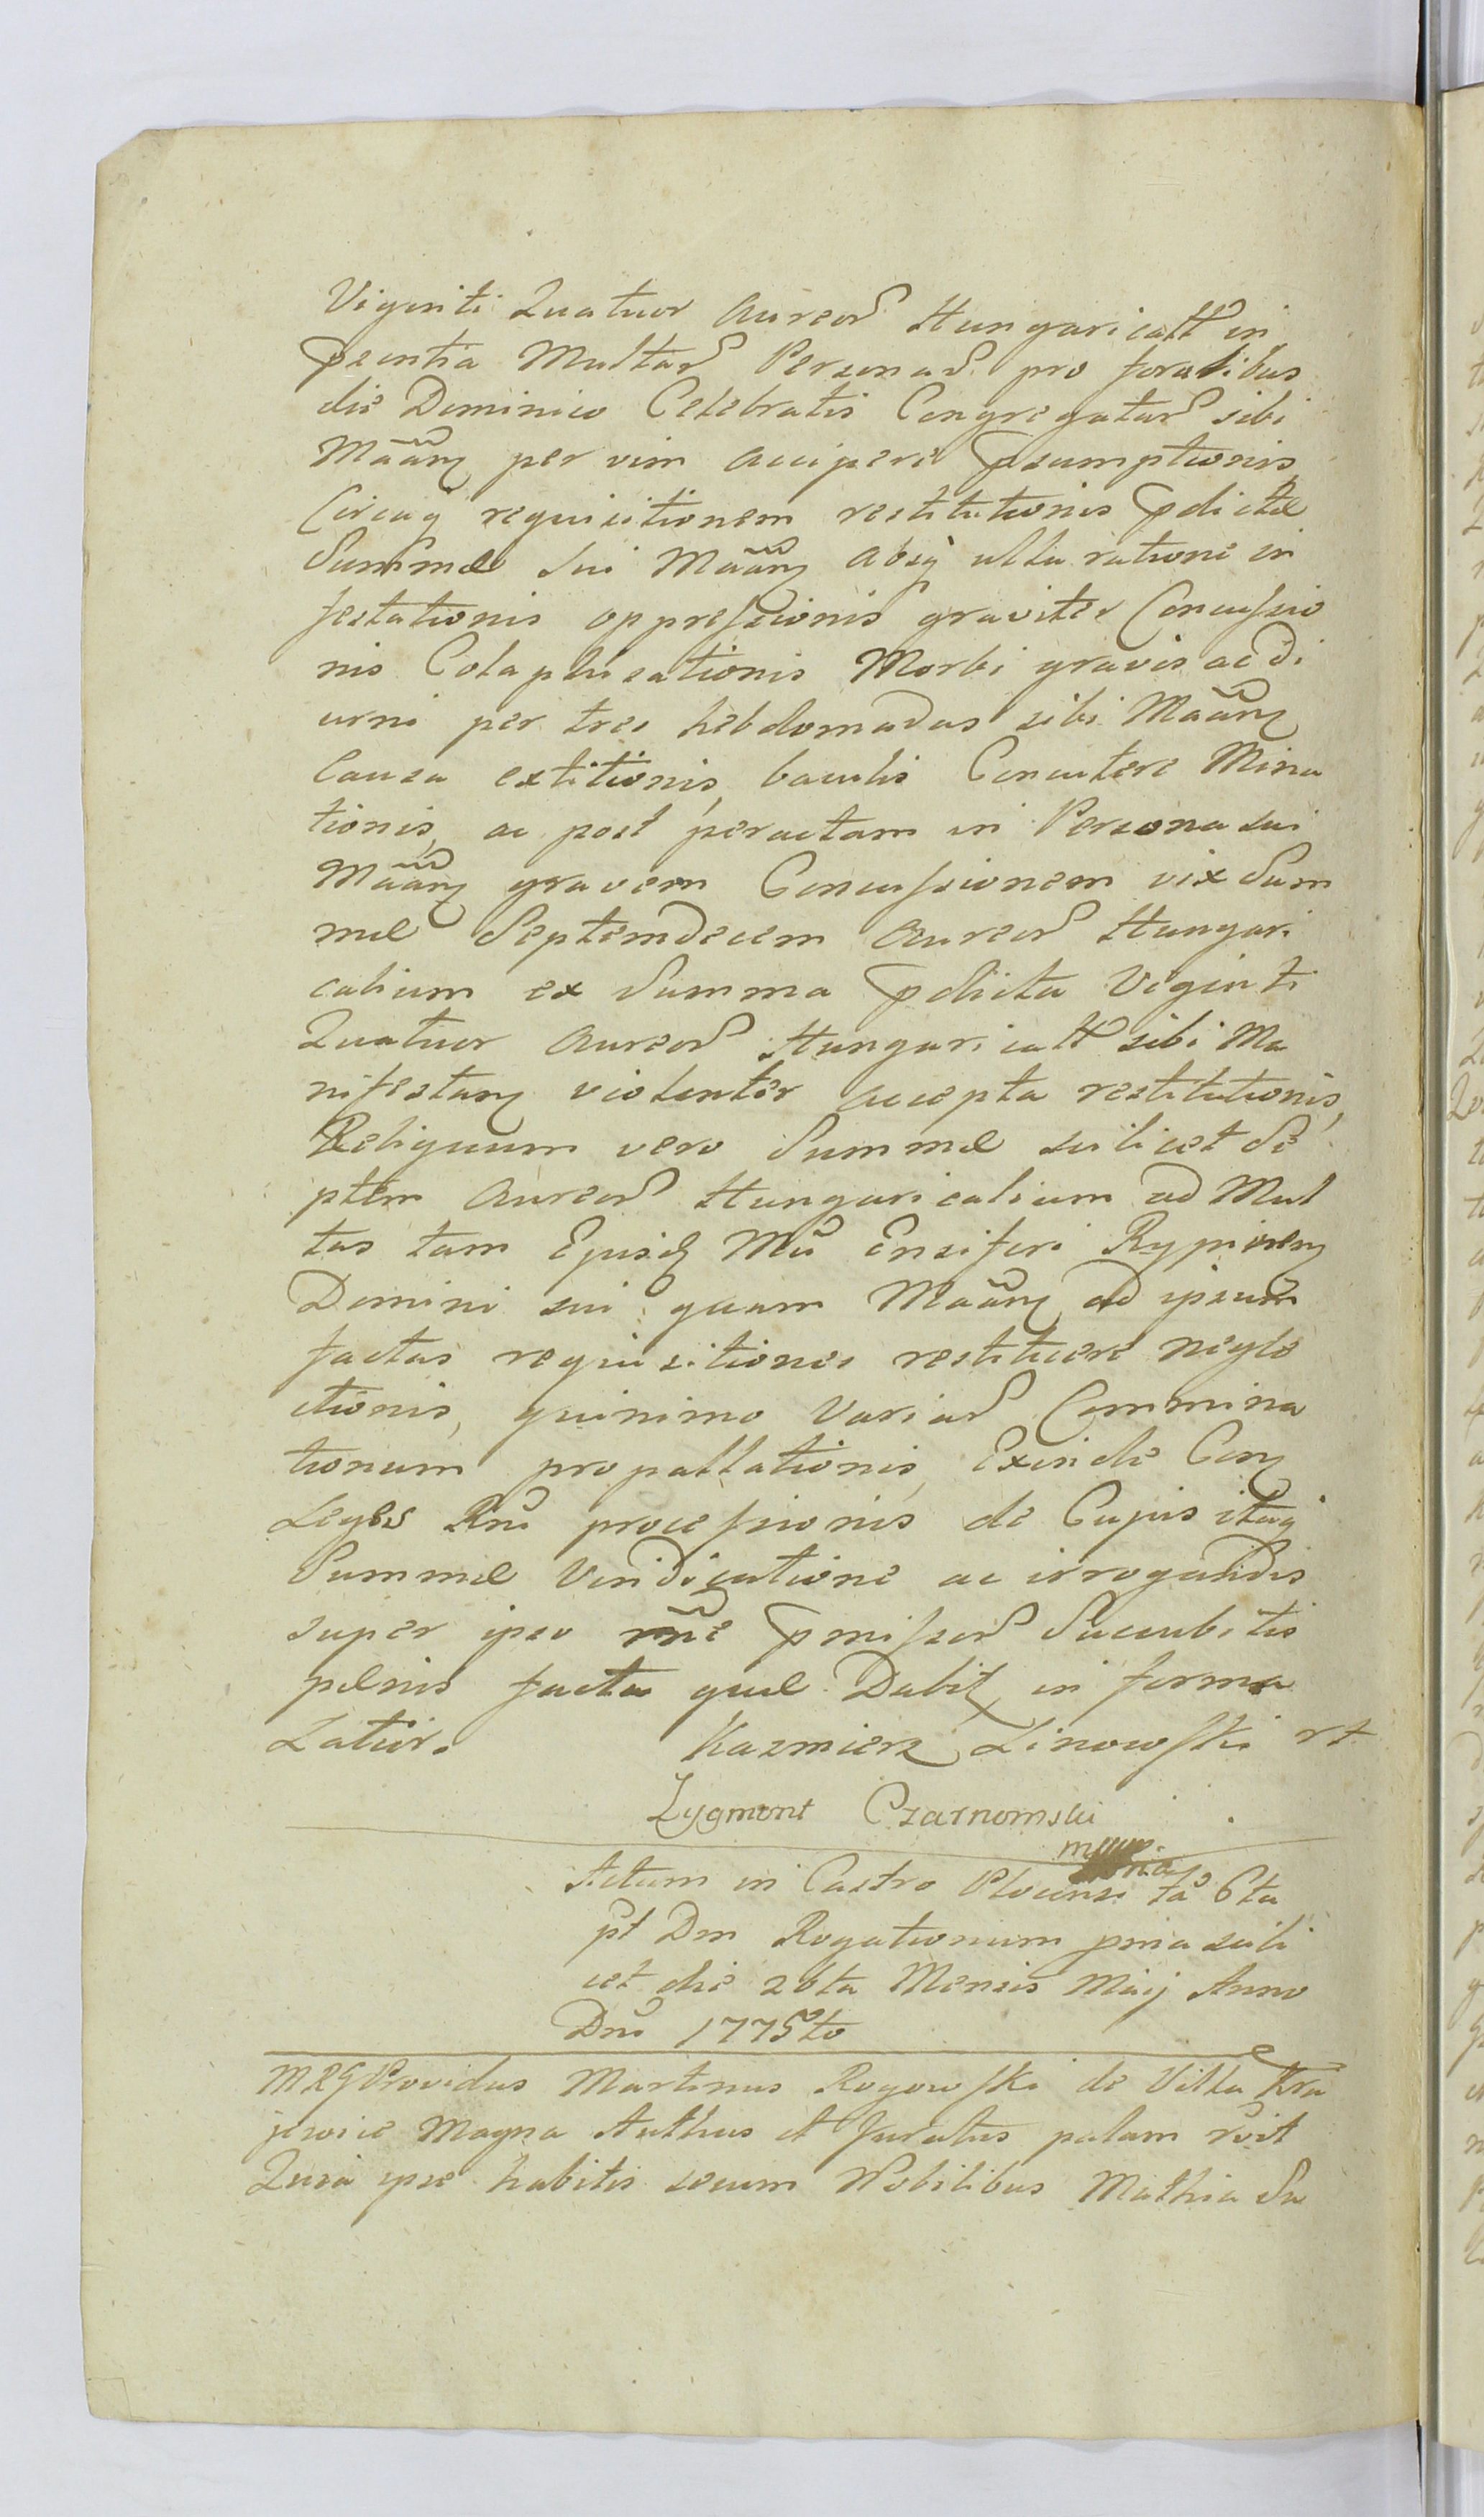 Viginti Quatuor Aureor Hungaricall in
pzentia Multar Personar pro foralibus
die Dominico Celebratis Congregatar sibi
Mããnz per vim accipere psumptionis
Circaq requisitionem restitutionis pdictæ
Summæ sui Mããnz absq ulla ratione in
festationis oppressionis graviter Concussio
nis Colaphisationis Morbi gravis ac di
urni per tres hebdomadas sibi Mããnz
Causa extitionis, baculis Concutere Mina
tionis, ac post peractam in Persona sui
Mããnz gravem Concussionem vix Sum
mæ Septemdecem Aureor Hungari
calium ex Summa pdicta Viginti
Quatuor Aureor Hungaricall sibi Ma
nifestanz violenter accepta restitutionis,
Reliquum vero Summæ scilicet Se
ptem Aureor Hungaricalium ad Mul
tas tam Ejusd Mci Ensiferi Rypinenz
Domini sui quam Mããnz ad ipsum
factas requisitiones restituere negle
ctionis, quinimo Variar Commina
tionum propallationis, Exinde Conz
Leges Rni processionis de Cujus itaq
Summæ Vindicatione ac irrogandis
super ipso rñe pmissor Succubitis
pænis facta quæ Dabit, in forma
Latior.
Kazmierz Linowski rt
Zygmont Czarnomski
Actum in Castro Plocensi fã 6ta
pt Dm Rogationum pma scili
cet die 26ta Mensis Maij Anno
Dni 1775to
MRG Providus Martinus Rogowski de Villa Kra
jewice Magna Authus et Juratus palam rvit
Quia ipse habitis secum Nobilibus Mathia Su